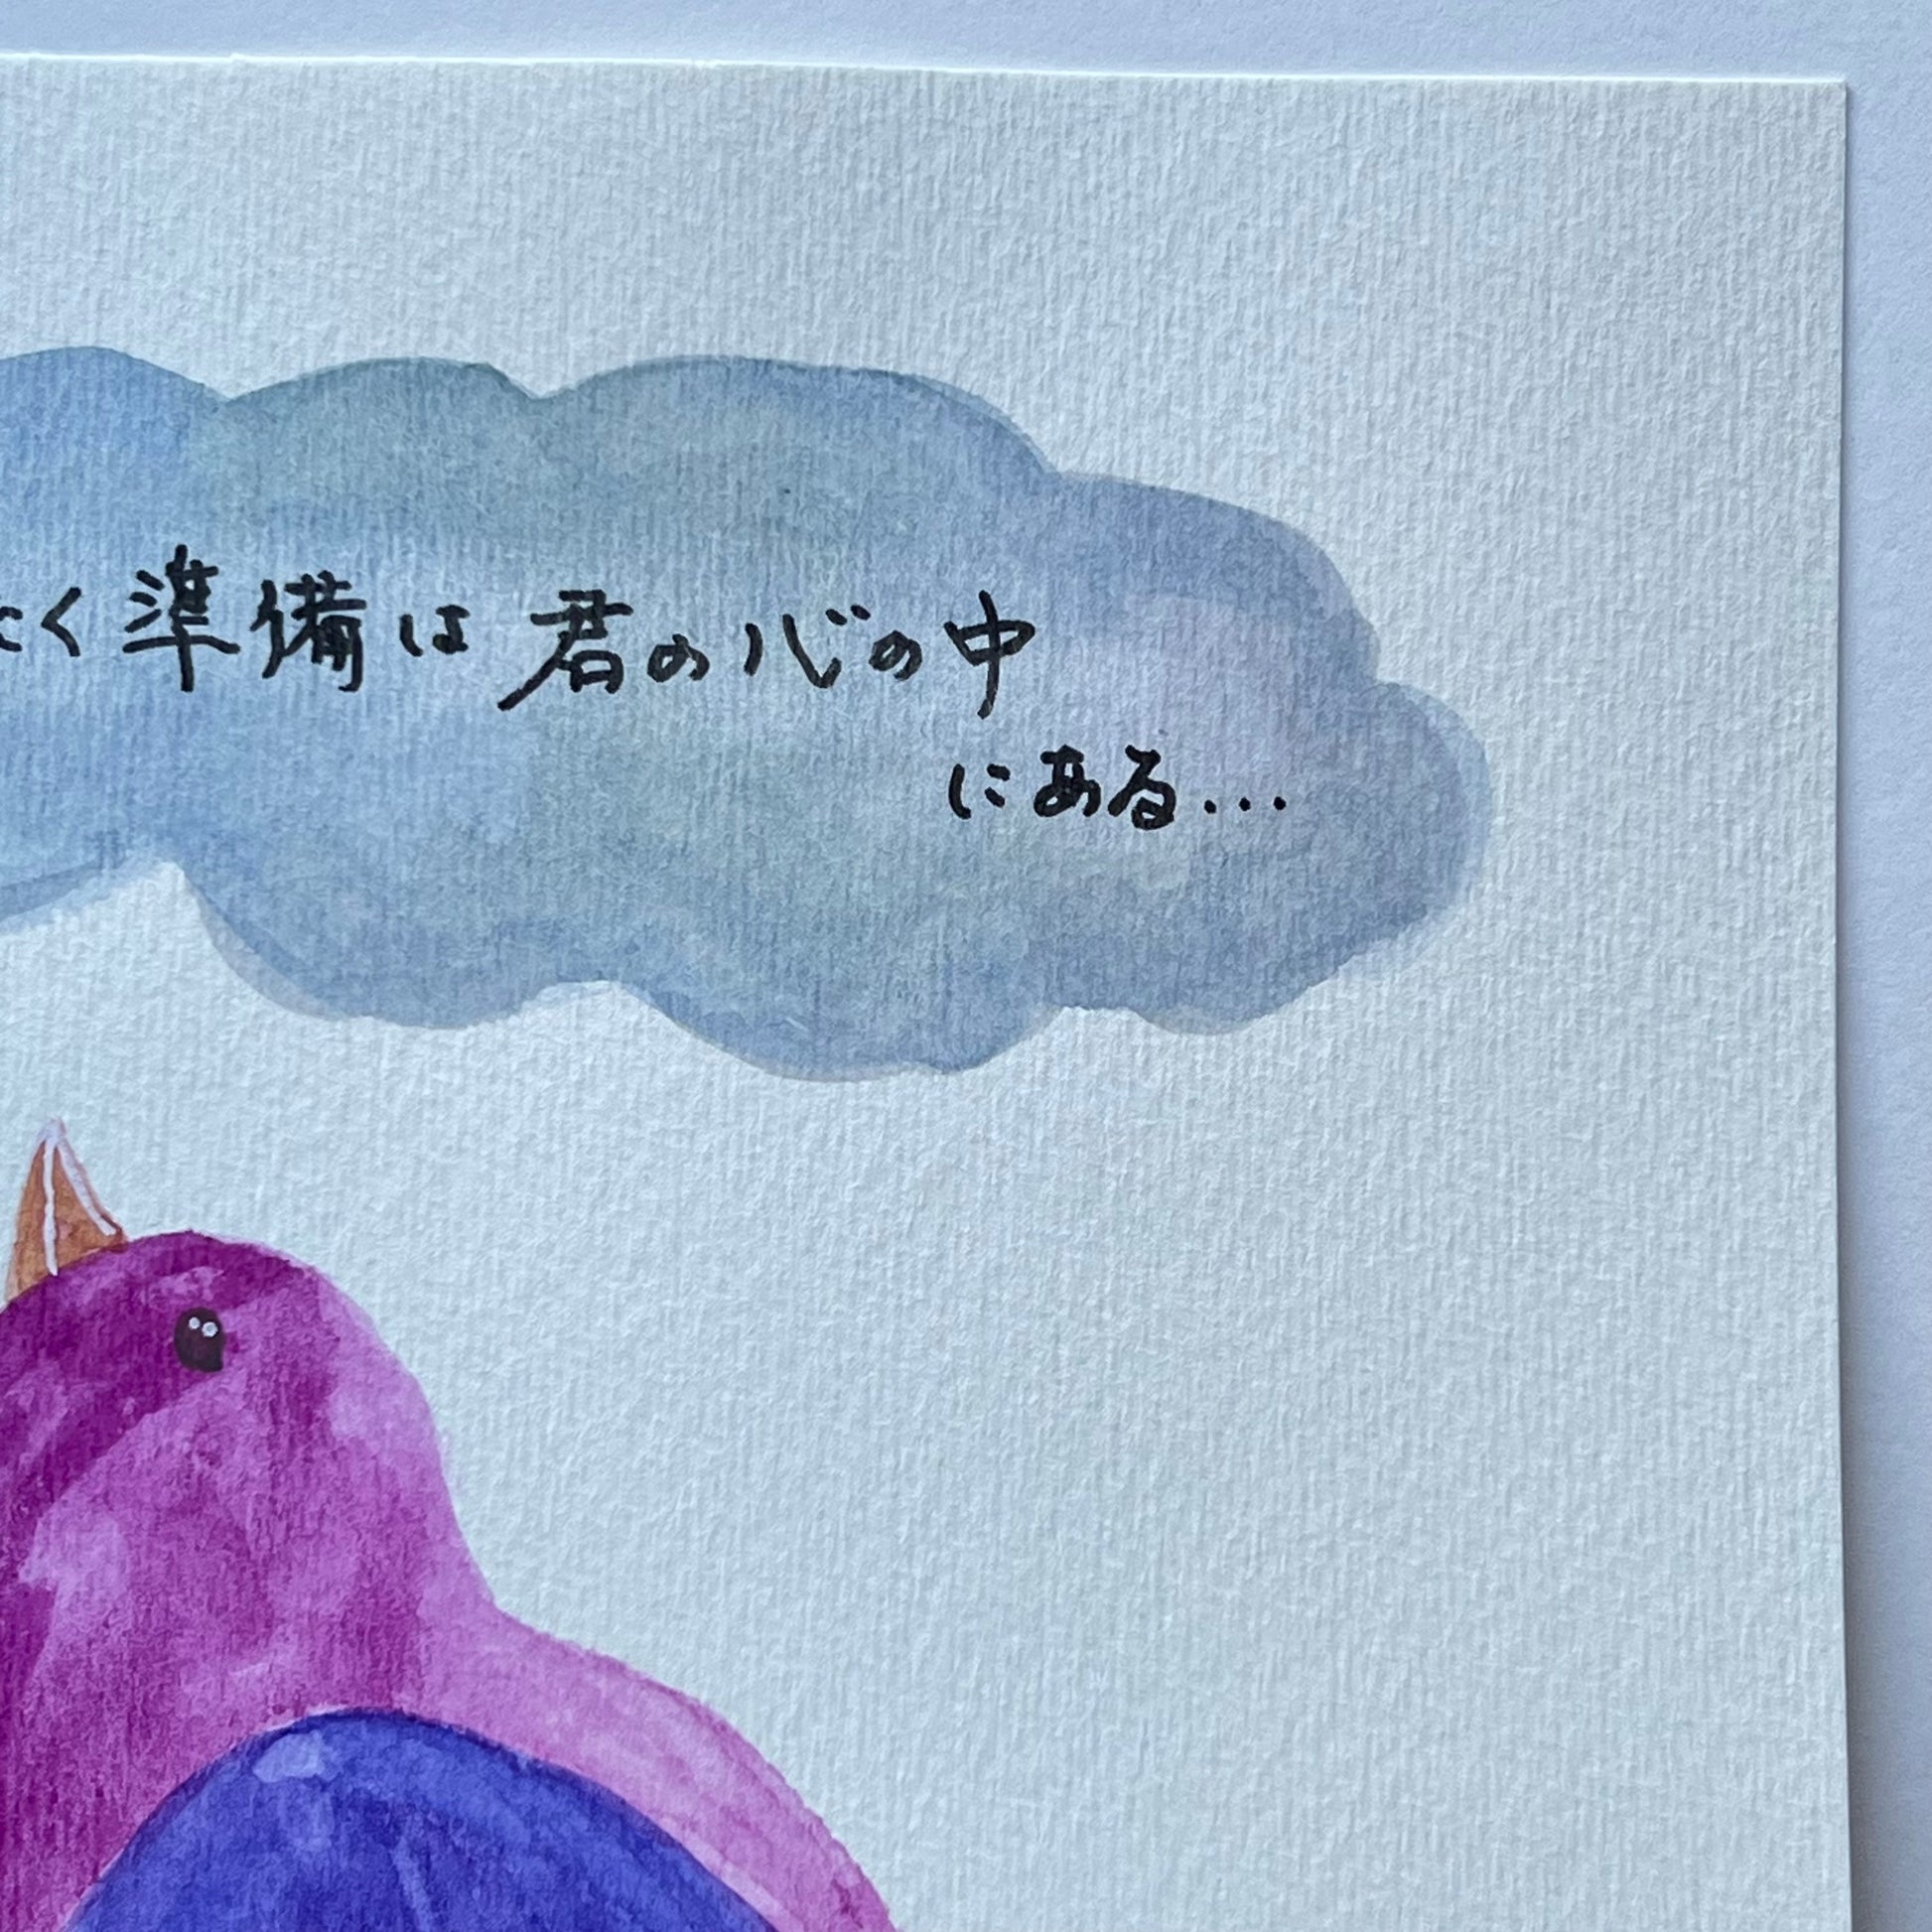 く準備は君の心の中
にある...